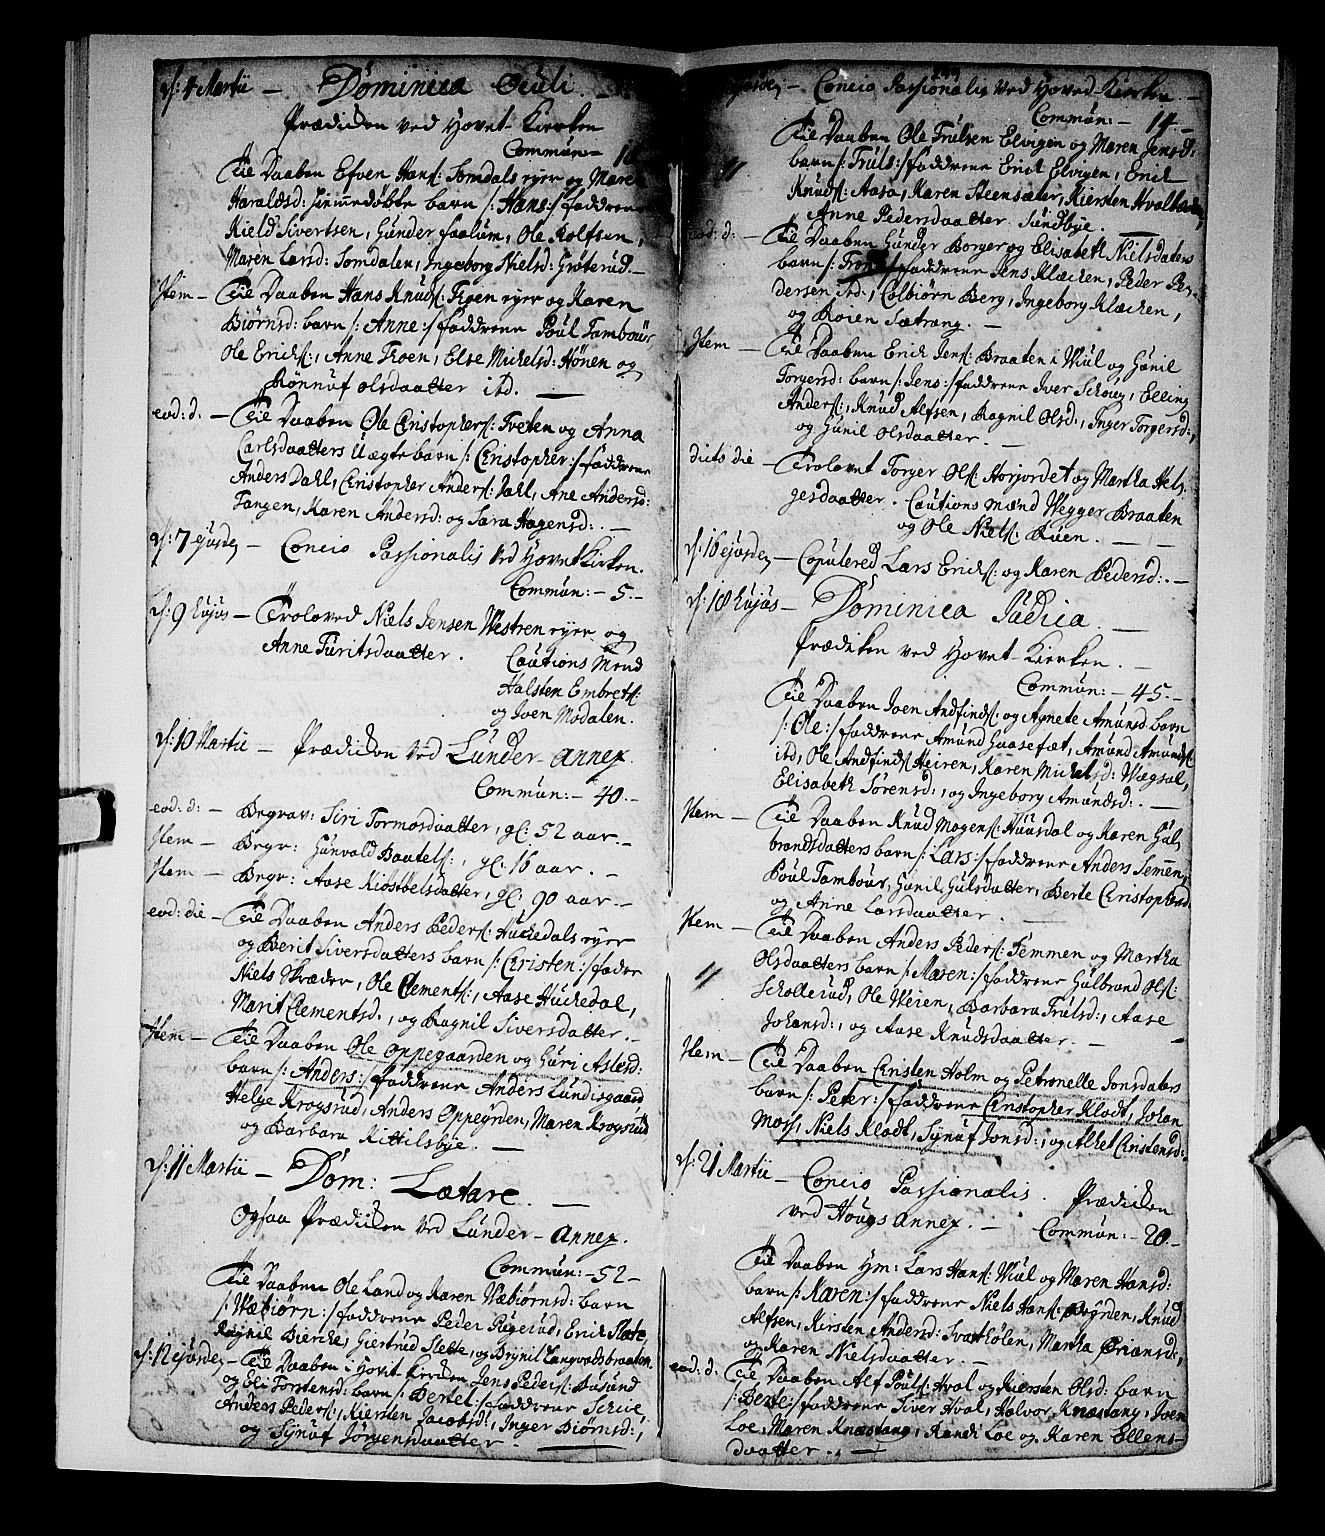 d: 4 Martii — Dominica Oculi. —
Prædiken ved Hovet-Kierken
Commun: —
Til Daaben Efven Hans: Somdals eyer og Maren
Haraldsd: hiemmedøbte barn /: Hans :/ faddrene
Kield Sivertsen, Gunder faalum, Ole Rolfsen,
Maren Larsd: Somdalen, Ingeborg Nielsd: Grøterud. —
Item — Til Daaben Hans Knuds: Troen eyer og Karen
Biørnsd: barn /: Anne :/ faddrene Poul Tambour,
Ole Ericks:, Anne Troen, Else Michelsd: Hønen og
Rønnuf Olsdaatter ibd. —
eod: d: — Til Daaben Ole Christophers: Tveten og Anna
Carlsdaatters Uægte barn /: Christopher :/ faddrene
Anders Dahl, Christopher Anders: Dahl, Ane Andersd:
Tangen, Karen Andersd: og Sara Hagensd: . —
d: 7 ejusdem — Concio Passionalis ved Hovet Kirken.
Commun: — 5. —
d: 9 hujus — Troloved Niels Jensen Westren eyer og
Anne Turitsdaatter. Cautions Mend
Halsten Embrets:
og Joen Modalen.
d: 10 Martii — Prædiken ved Lunder-annex.
Commun: — 40. —
eod: d: — Begrav: Siri Tormosdaatter, gl: 52 aar. —
Item — Begr: Gunvald Baatels:, gl: 16 aar. —
Item — Begr: Aase Kiostelsdatter, gl: 90 aar. —
eod: die — Til Daaben Anders Peders: Huckedals eyer
og Berit Siversdatters barn /: Christen :/ fadre
Niels Skræder, Ole Clements:, Aase Huckedal,
Marit Clementsd:, og Ragnil Siversdatter. —
Item — Til Daaben Ole Oppegaarden og Guri Aslesd:
barn /: Anders :/ faddrene Anders Lundisgaard
Helge Krogsrud, Anders Oppeyrden, Maren Krogsrud
og Barbara Kittilsbye. —
d: 11 Martii — Dom: Lætare. —
Ogsaa Prædiken ved Lunder-annex.
Commun: — 52 —
Til Daaben Ole Land og Karen Wæbiørnsd: barn
/: Wæbiørn :/ faddrene Peder Rugerud, Erick Slette,
Ragnil Biercke, Giertrud Slette, og Brynil Langvadsbraaten.
d: 12 ejusdem — Til Daaben i Hovit Kirken Jens Peders: Busund
og Eli Torstensd: barn /: Bertel :/ faddrene
Anders Peders:, Kiersten Jacobsd:, Inger Biørnsd:,
og Synuf Jørgensdaatter. —
ejusdem — Concio Passionalis ved Hoved-Kierken. —
Commun: — 14 —
Til Daaben Ole Trulsen Elvigen og Maren Jensd:
barn /: Truls :/ faddrene Erick Elvigen, Erick
Knuds: Aasa, Karen Steensæter, Kiersten Hvalbakken,
Anne Pedersdaatter Sundbye. —
eod: d: — Til Daaben Gunder Borger og Elisabeth Nielsdaters
barn /: :/ faddrene Jens Klæcken, Peder Pe-
dersen ibd:, Colbiørn Berg, Ingeborg Klæcken,
og Roien Sætrang. —
Item — Til Daaben Erick Jens: Braaten i Wiul og Gunil
Torgersd: barn /: Jens :/ faddrene Iver Schoug, Elling
Anders:, Knud Alfsen, Ragnil Olsd:, Inger Torgersd:,
og Gunil Olsdaatter. —
dicto die — Trolovet Torger Ols: Horjordet og Martha Hel-
gesdaatter. Cautions mænd Wegger Braaten
og Ole Niels: Ruen. —
d: 16 ejusdem — Copulered Lars Ericks: og Karen Pedersd: . —
d: 18 hujus — Dominica Judica. —
Prædiken ved Hovet-Kierken. —
Commun: — 45. —
Til Daaben Joen Andfinds: og Agnete Amunsd: barn
/: Ole :/ faddrene Amund Gaasefæt, Amund Amunds:
ibd, Ole Andfinds: Heiren, Karen Michelsd: Wægsal,
Elisabeth Sørensd:, og Ingeborg Amundsd: . —
Item — Til Daaben Knud Mogens: Huusdal og Karen Gul-
brandsdatters barn /: Lars :/ faddrene Anders Semmen,
Poul Tambour, Gunil Gulsdatter, Berte Christophersd:
og Anne Larsdaatter. —
Item — Til Daaben Anders Peders: Temmen og Martha
Olsdaatters barn /: Maren :/ faddrene Gulbrand Ols:
Schollerud, Ole Weien, Barbara Trulsd:, Aase
Johansd:, og Aase Knudsdaatter. —
Item — Til Daaben Christen Holm og Petronelle Jonsdaters
barn /: Peter :/ faddrene Christopher Klodt, Johan
Mors, Niels Klodt, Synuf Jonsd:, og Alhet Christensd: .
d: 21 Martii — Concio Passionalis. Prædiken
ved Hougs annex. — Commun: — 20. —
Til Daaben Hm: Lars Hans: Wiul og Maren Hansd:
barn /: Karen :/ faddrene Niels Hans: Bøyrden, Knud
Alfsen, Kirsten Andersd: Svarthølen, Martha Ørjansd:,
og Karen Nielsdaatter. —
eod: d: — Til Daaben Alf Pouls: Hval og Kiersten Olsd: barn
/: Berte :/ faddrene Siver Hval, Halvor Knæstang, Joen
Loe, Maren Knæstang, Randi Loe og Karen Ellens-
daatter. —